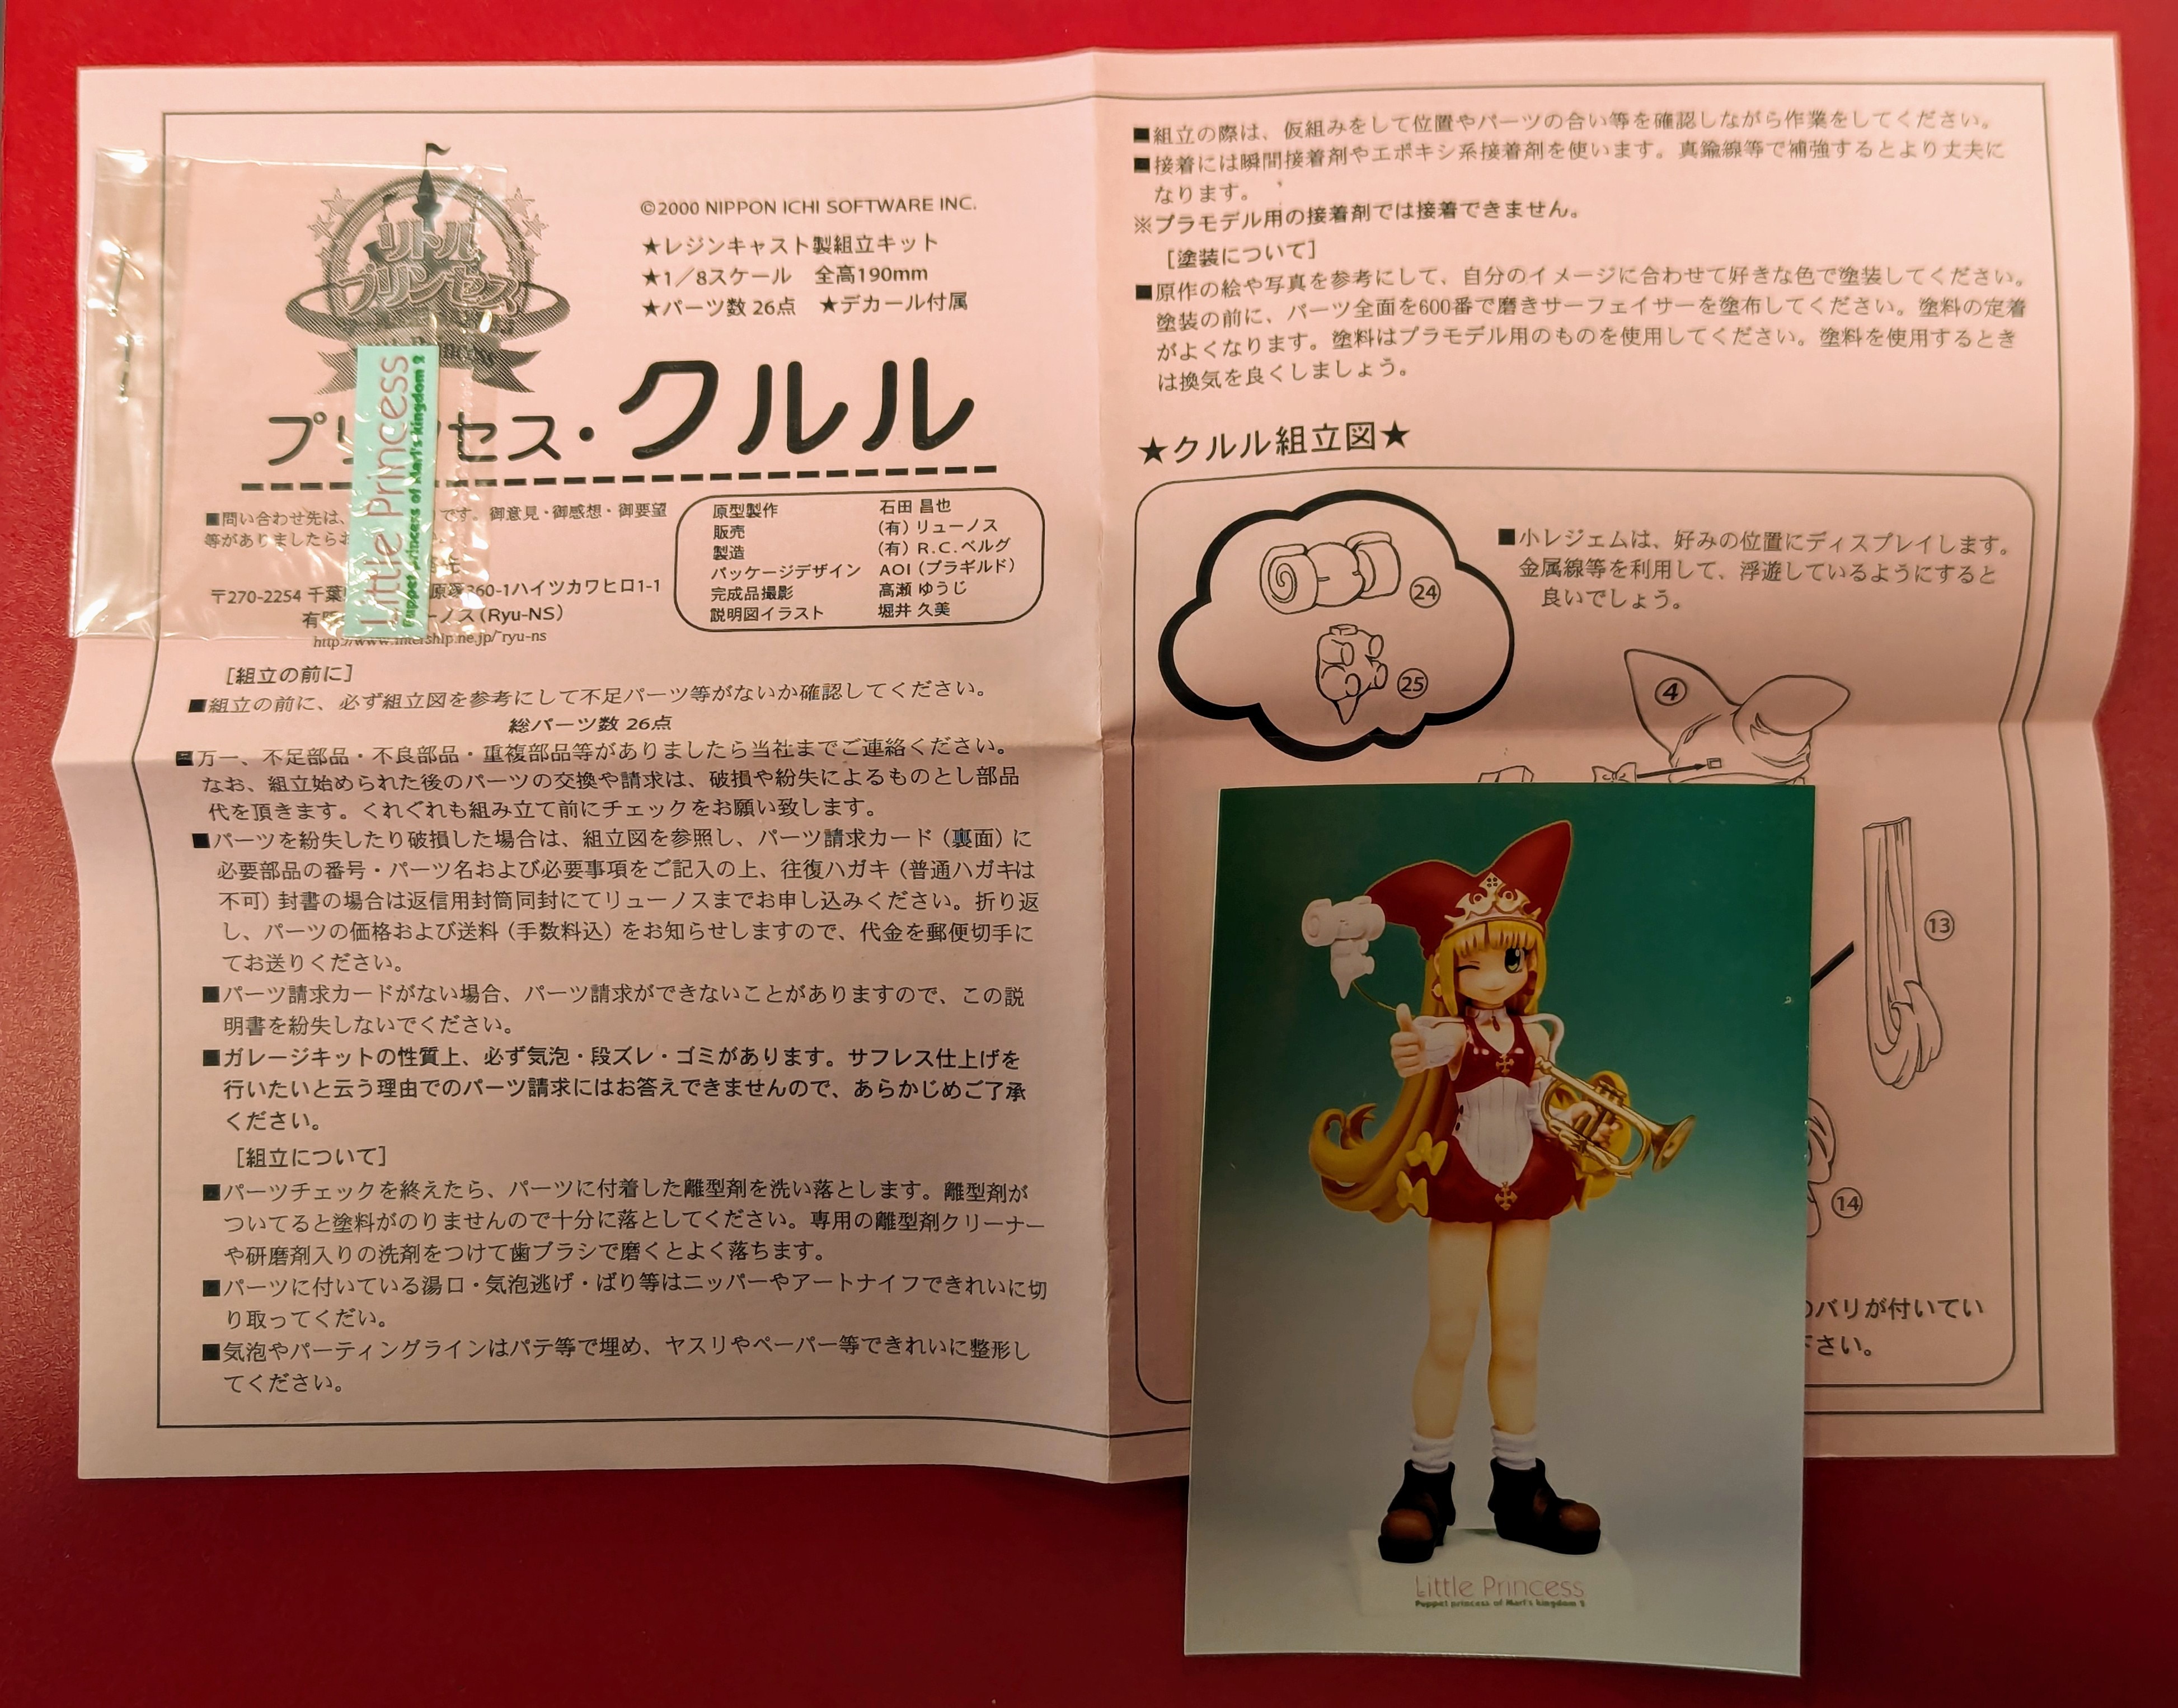 リトル
プリンセス
©2000 NIPPON ICHI SOFTWARE INC.
★レジンキャスト製組立キット
★1／8スケール　全高190mm
★パーツ数 26点　★デカール付属
プリ セス・クルル
Little Princess
Puppet princess of Marl's kingdom 2
■問い合わせ先は、 です。御意見・御感想・御要望
等がありましたらお
〒270-2254 千葉 360-1ハイツカワヒロ1-1
有 ーノス（Ryu-NS）
http://www.intership.ne.jp/~ryu-ns
原型製作　石田 昌也
販売　（有）リューノス
製造　（有）R.C.ベルグ
パッケージデザイン　AOI（ブラギルド）
完成品撮影　高瀬 ゆうじ
説明図イラスト　堀井 久美
［組立の前に］
■組立の前に、必ず組立図を参考にして不足パーツ等がないか確認してください。
総パーツ数 26点
■万一、不足部品・不良部品・重複部品等がありましたら当社までご連絡ください。
なお、組立始められた後のパーツの交換や請求は、破損や紛失によるものとし部品
代を頂きます。くれぐれも組み立て前にチェックをお願い致します。
■パーツを紛失したり破損した場合は、組立図を参照し、パーツ請求カード（裏面）に
必要部品の番号・パーツ名および必要事項をご記入の上、往復ハガキ（普通ハガキは
不可）封書の場合は返信用封筒同封にてリューノスまでお申し込みください。折り返
し、パーツの価格および送料（手数料込）をお知らせしますので、代金を郵便切手に
てお送りください。
■パーツ請求カードがない場合、パーツ請求ができないことがありますので、この説
明書を紛失しないでください。
■ガレージキットの性質上、必ず気泡・段ズレ・ゴミがあります。サフレス仕上げを
行いたいと云う理由でのパーツ請求にはお答えできませんので、あらかじめご了承
ください。
［組立について］
■パーツチェックを終えたら、パーツに付着した離型剤を洗い落とします。離型剤が
ついてると塗料がのりませんので十分に落としてください。専用の離型剤クリーナー
や研磨剤入りの洗剤をつけて歯ブラシで磨くとよく落ちます。
■パーツに付いている湯口・気泡逃げ・ばり等はニッパーやアートナイフできれいに切
り取ってくだい。
■気泡やパーティングラインはパテ等で埋め、ヤスリやペーパー等できれいに整形し
てください。
■組立の際は、仮組みをして位置やパーツの合い等を確認しながら作業をしてください。
■接着には瞬間接着剤やエポキシ系接着剤を使います。真鍮線等で補強するとより丈夫に
なります。
※プラモデル用の接着剤では接着できません。
［塗装について］
■原作の絵や写真を参考にして、自分のイメージに合わせて好きな色で塗装してください。
塗装の前に、パーツ全面を600番で磨きサーフェイサーを塗布してください。塗料の定着
がよくなります。塗料はプラモデル用のものを使用してください。塗料を使用するとき
は換気を良くしましょう。
★クルル組立図★
■小レジェムは、好みの位置にディスプレイします。
金属線等を利用して、浮遊しているようにすると
良いでしょう。
㉔
㉕
④
⑬
⑭
のバリが付いてい
下さい。
Little Princess
Puppet princess of Marl's kingdom 2